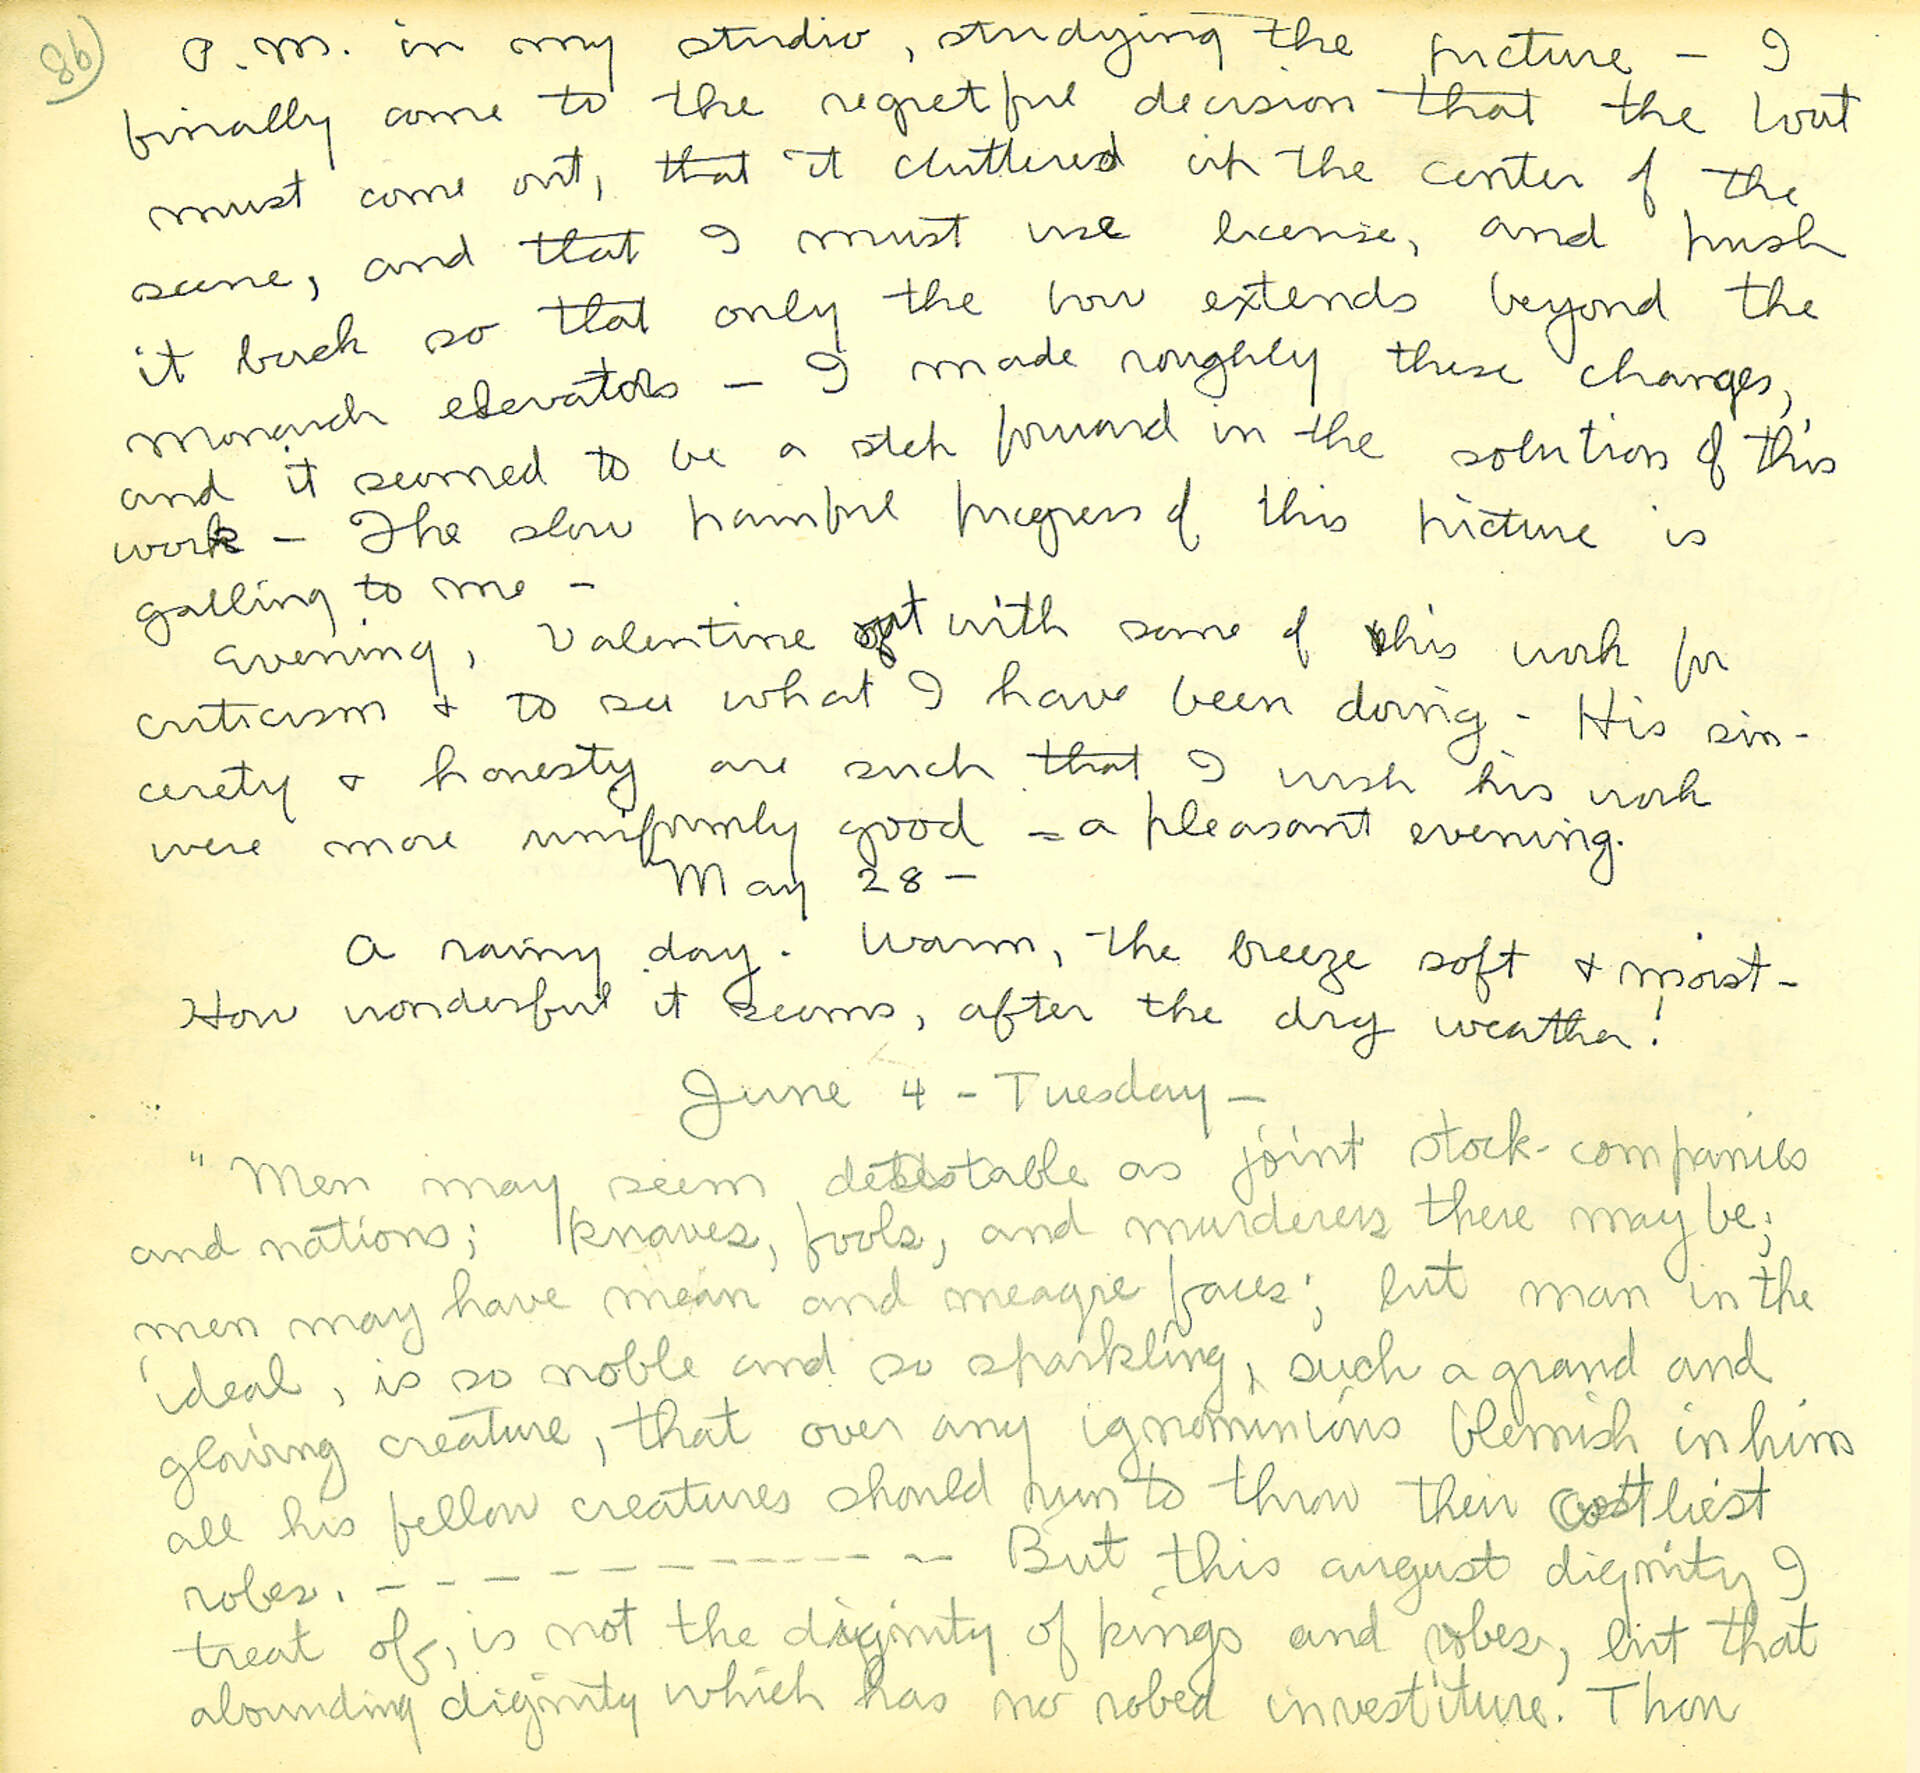 86
P.M. in my studio, studying the picture – I
finally come to the regretful decision that the boat
must come out, that it cluttered up the center of the
scene, and that I must use license, and push
it back so that only the bow extends beyond the
Monarch elevators – I made roughly these changes,
and it seemed to be a step forward in the solution of this
work – The slow painful progress of this picture is
galling to me –
Evening, Valentine out with some of his work for
criticism & to see what I have been doing - His sin-
cerety & honesty are such that I wish his work
were more uniformly good – a pleasant evening.
May 28 –
A rainy day. Warm, the breeze soft & moist –
How wonderful it seems, after the dry weather!
June 4 – Tuesday –
"Men may seem detestable as joint stock-companies
and nations; knaves, fools, and murderers there may be;
men may have mean and meagre faces; but man in the
ideal, is so noble and so sparkling, such a grand and
glowing creature, that over any ignominious blemish in him
all his fellow creatures should run to throw their costliest
robes. – – – – – – – – – – But this august dignity I
treat of, is not the dignity of kings and robes, but that
abounding dignity which has no robed investiture. Thou